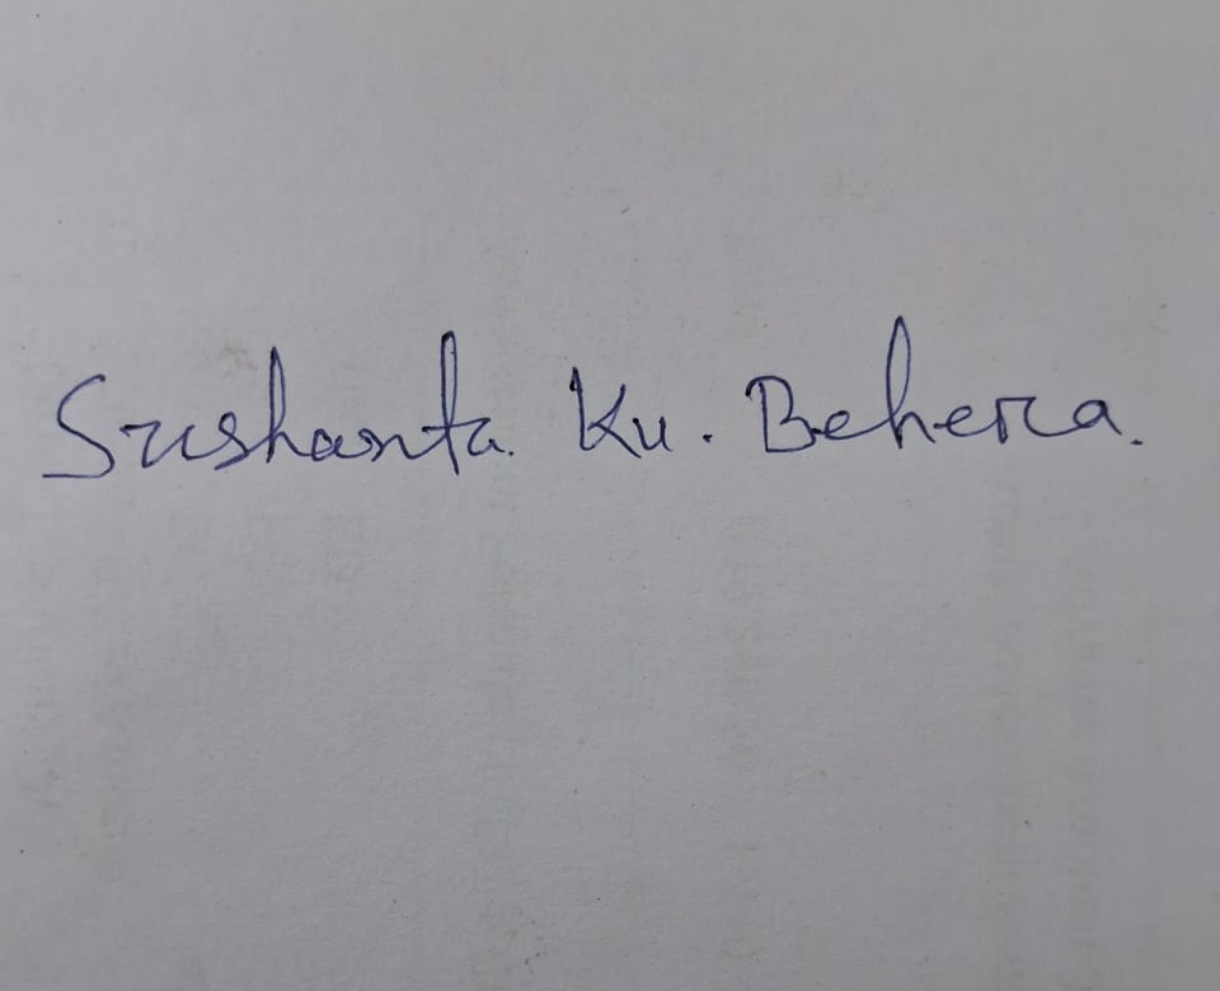 Sushanta Ku. Behera.